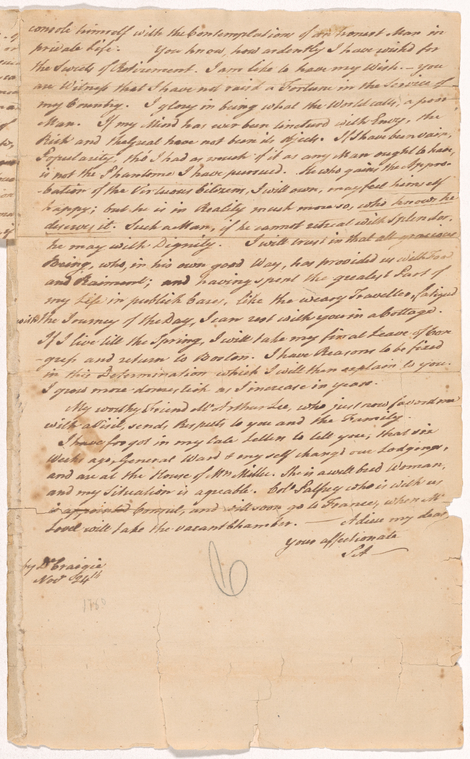 console himself with the Contemplations of an honest Man in
private Life. You know, how ardently I have wishd for
the Sweets of Retirement. I am like to have my Wish.— You
are Witness that I have not raisd a Fortune in the Service of
my Country. I glory in being what the World calls, a poor
Man. If my Mind has ever been tinctured with Envy, the
Rich and the Great have not been its Objects. If I have been vain,
Popularity, tho I had as much of it as any Man ought to have,
is not the Phantome I have pursued. He who gains the Appro-
-bation of the Virtuous Citizens, I will own, may feel himself
happy; but he is in Reality much more so, who knows he
deserves it. Such a Man, if he cannot retreat with Splendor,
he may with Dignity. I will trust in that all gracious
Being, who, in his own good Way, has provided us with Food
and Raiment; and having spent the greatest Part of
my Life in publick Cares, like the weary Traveller, fatigud
with the Journey of the Day, I can rest with you in a Cottage.
If I live till the Spring, I will take my final Leave of Con
-gress and return to Boston. I have Reasons to be fixed
in this Determination which I will then explain to you.
I grow more domestick as I increase in years.
My worthy Friend Mr Arthur Lee, who just now favord me
with a Visit, sends Respects to you and the Family.
I have forgot in my late Letters to tell you, that six
Weeks ago, General Ward & my self changd our Lodgings,
and are at the House of Mrs Miller. She is a well bred Woman,
and my Situation is agreable. Colo Palfrey who is with us
is appointed Consul, and will soon go to France, when Mr
Lovel will take the vacant Chamber. — Adieu my dear
your affectionate
S A
by Dr Craigie
Novr 24th